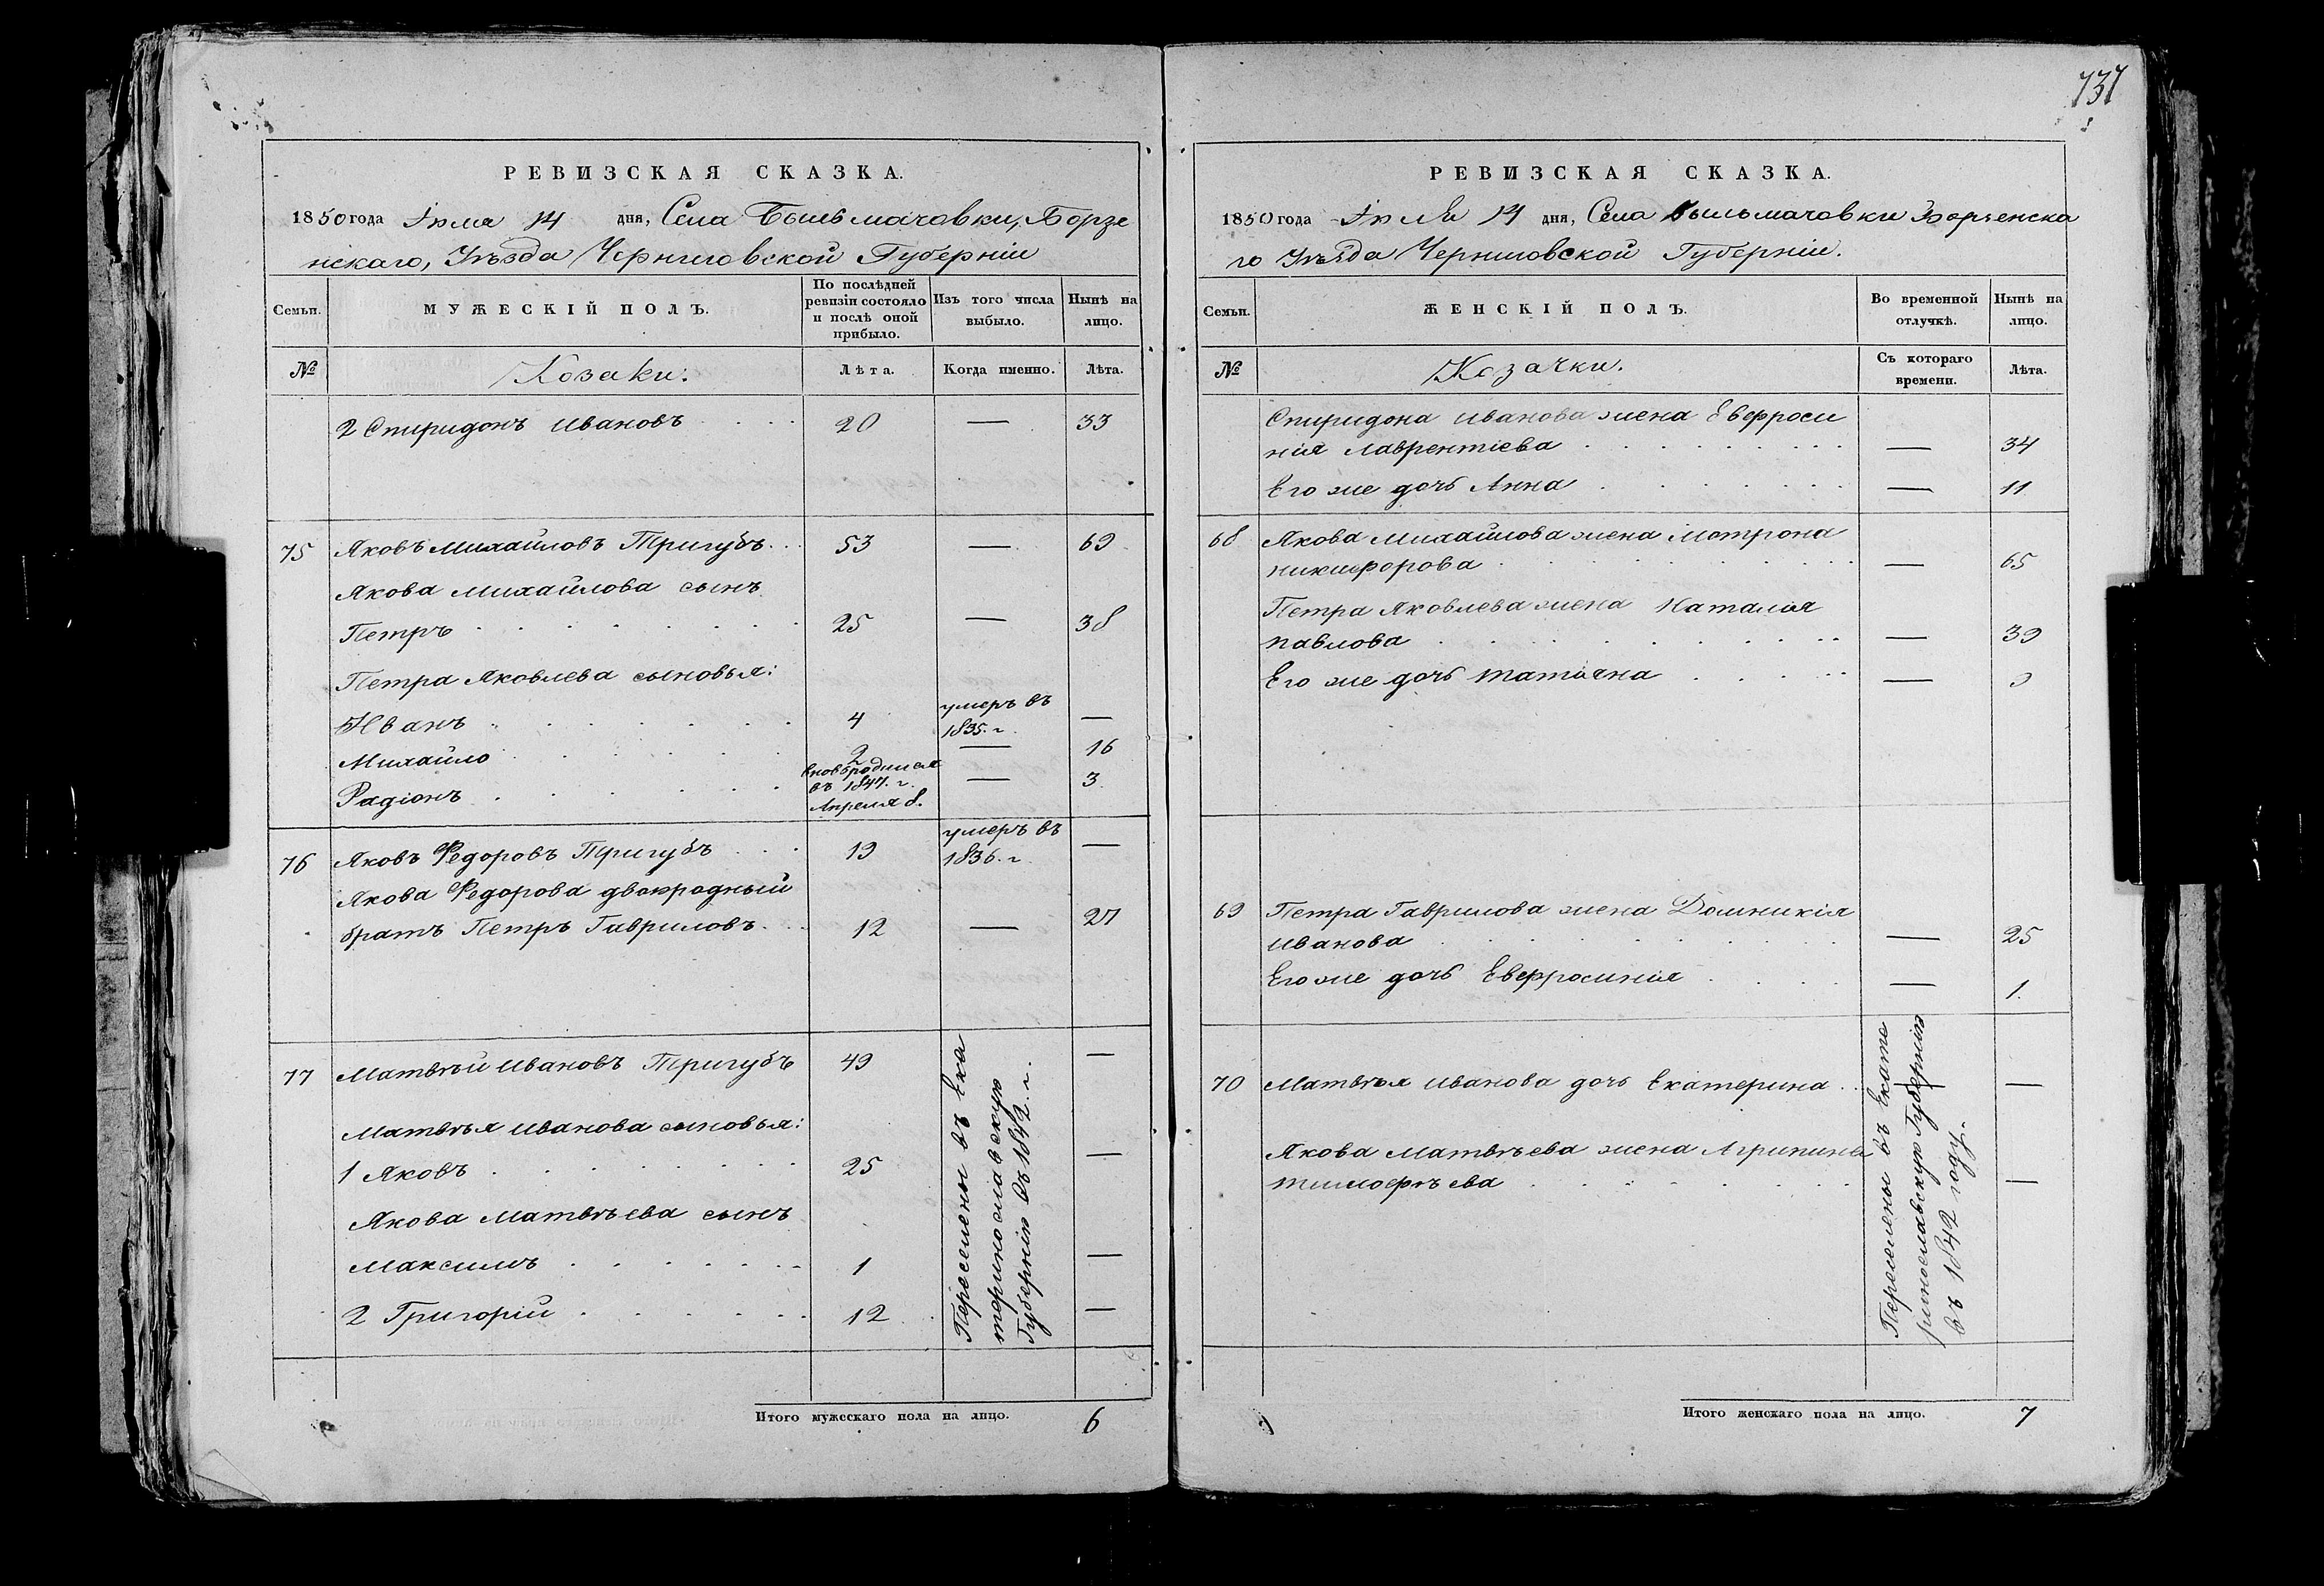 737
РЕВИЗСКАЯ СКАЗКА.
1850 года Апля 14 дня, Села Бильмачовки, Борзе
нскаго, Уѣзда Черниговской Губерніи
Семьи. МУЖЕСКІЙ ПОЛЪ. По послѣдней ревизіи состояло и послѣ оной прибыло. Изъ того числа выбыло. Нынѣ на лицо.
№ Козаки: Лѣта. Когда именно. Лѣта.
2 Спиридонъ Ивановъ 20 — 33
75 Яковъ Михайловъ Тригубъ 53 — 69
Якова Михайлова сынъ
Петръ 25 — 38
Петра Яковлева сыновья:
Иванъ 4 умеръ въ 1835. г. —
Михайло 2 — 16
Радіонъ вновь родился въ 1847. г. Апреля 8. — 3
76 Яковъ Федоровъ Тригубъ 19 умеръ въ 1836. г. —
Якова Федорова двоюродный
братъ Петръ Гавриловъ 12 — 27
77 Матвѣй Ивановъ Тригубъ 49 —
Матвѣя Иванова сыновья:
1 Яковъ 25 —
Якова Матвѣева сынъ
Максимъ 1 —
2 Григорій 12 —
Переселены въ Ека
теринославскую
Губернію въ 1842. г.
Итого мужескаго пола на лицо. 6
РЕВИЗСКАЯ СКАЗКА.
1850 года Апля 14 дня, Села Бильмачовки Борзенска
го Уѣзда Черниговской Губерніи.
Семьи. ЖЕНСКІЙ ПОЛЪ. Во временной отлучкѣ. Нынѣ на лицо.
№ Козачки. Съ котораго времени. Лѣта.
Спиридона Иванова жена Евфроси
нія Лаврентіева — 34
Его же дочь Анна — 11
68 Якова Михайлова жена Мотрона
Никифорова — 65
Петра Яковлева жена Наталія
Павлова — 39
Его же дочь Татіяна — 9
69 Петра Гаврилова жена Домникія
Иванова — 25
Его же дочь Евфросинія — 1.
70 Матвѣя Иванова дочь Екатерина — —
Якова Матвѣева жена Агрипина
Тимофѣева —
Переселены въ Екате
ринославскую Губернію
въ 1842 году.
Итого женскаго пола на лицо. 7